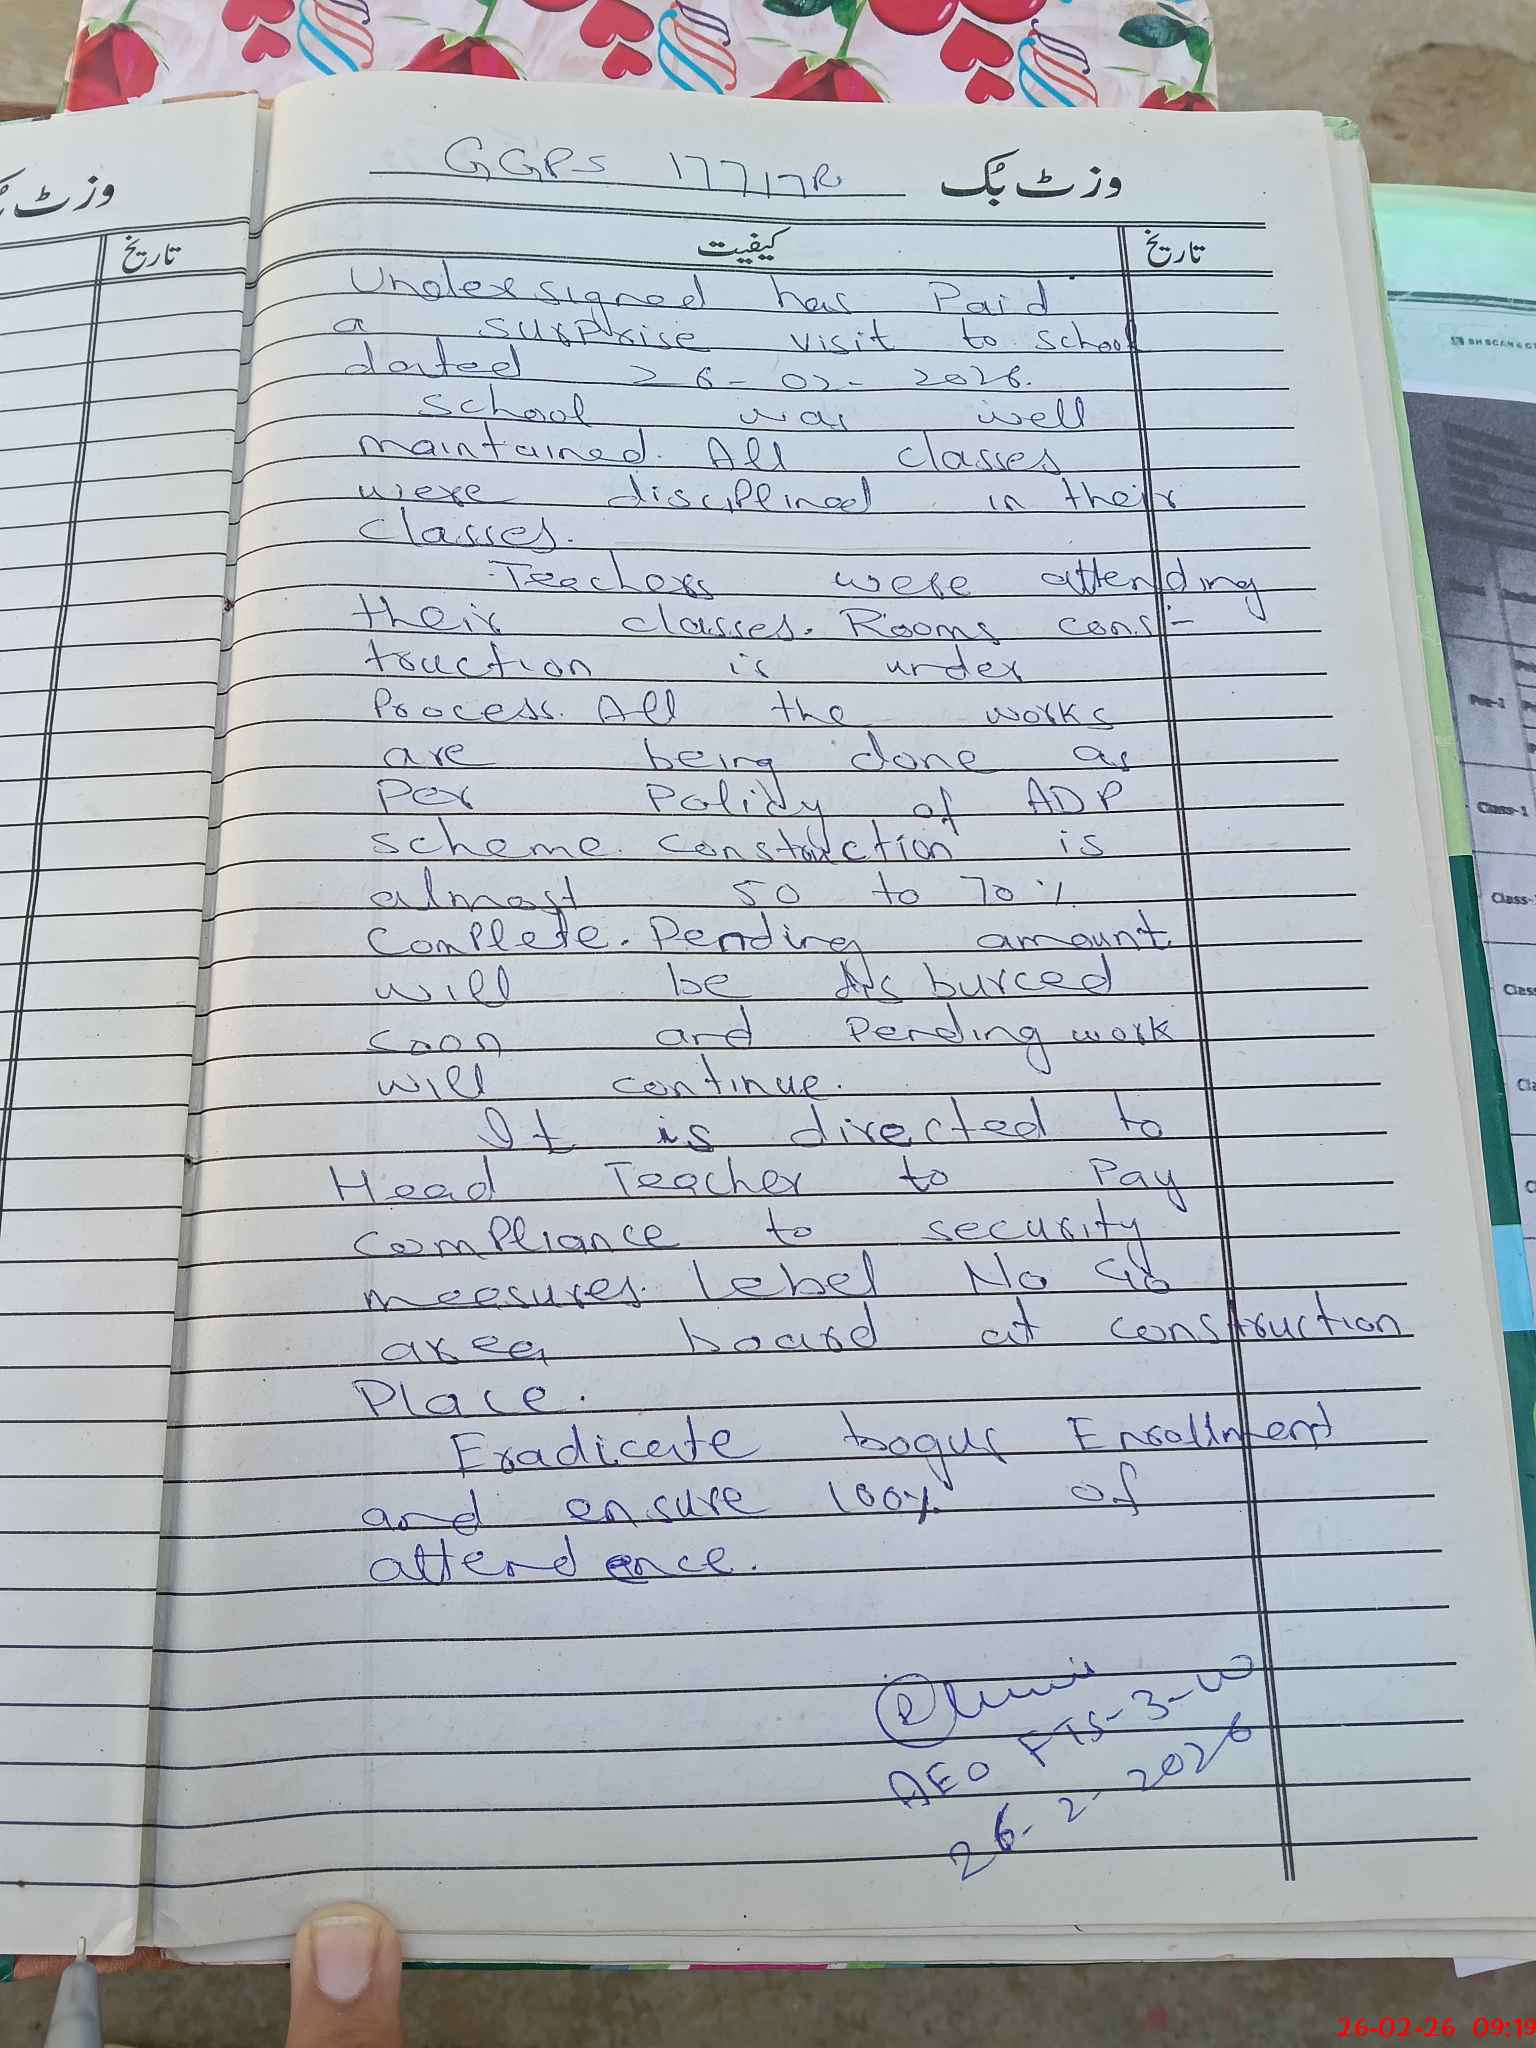 وزٹ بُک
تاریخ
GGPS 177/7R وزٹ بُک
کیفیت
تاریخ
Undersigned has Paid
a surprise visit to school
dated 26-02-2026.
School was well
maintained. All classes
were disciplined in their
classes.
Teachers were attending
their classes. Rooms cons-
truction is under
Process. All the works
are being done as
Per Policy of ADP
scheme. Construction is
almost 50 to 70%
Complete. Pending amount
will be disburced
soon and Pending work
will continue.
It is directed to
Head Teacher to Pay
compliance to security
measures. Lebel No Go
area board at construction
Place.
Eradicate bogus Enrollment
and ensure 100% of
attendence.
AEO FTS-3-W
26-2-2026
Class-1
26-02-26 09:19